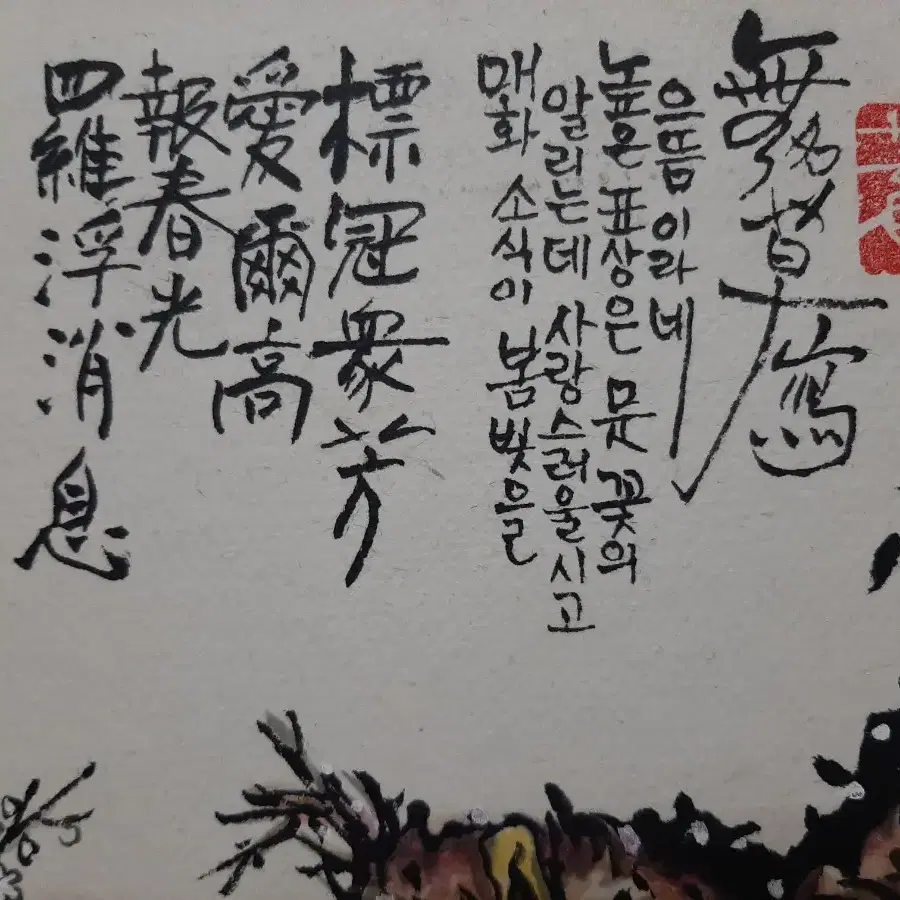 羅浮消息
報春光
愛爾高
標冠衆芳
매화 소식이 봄빛을
알리는데 사랑스러울시고
높은 표상은 뭇 꽃의
으뜸이라네
無名草寫